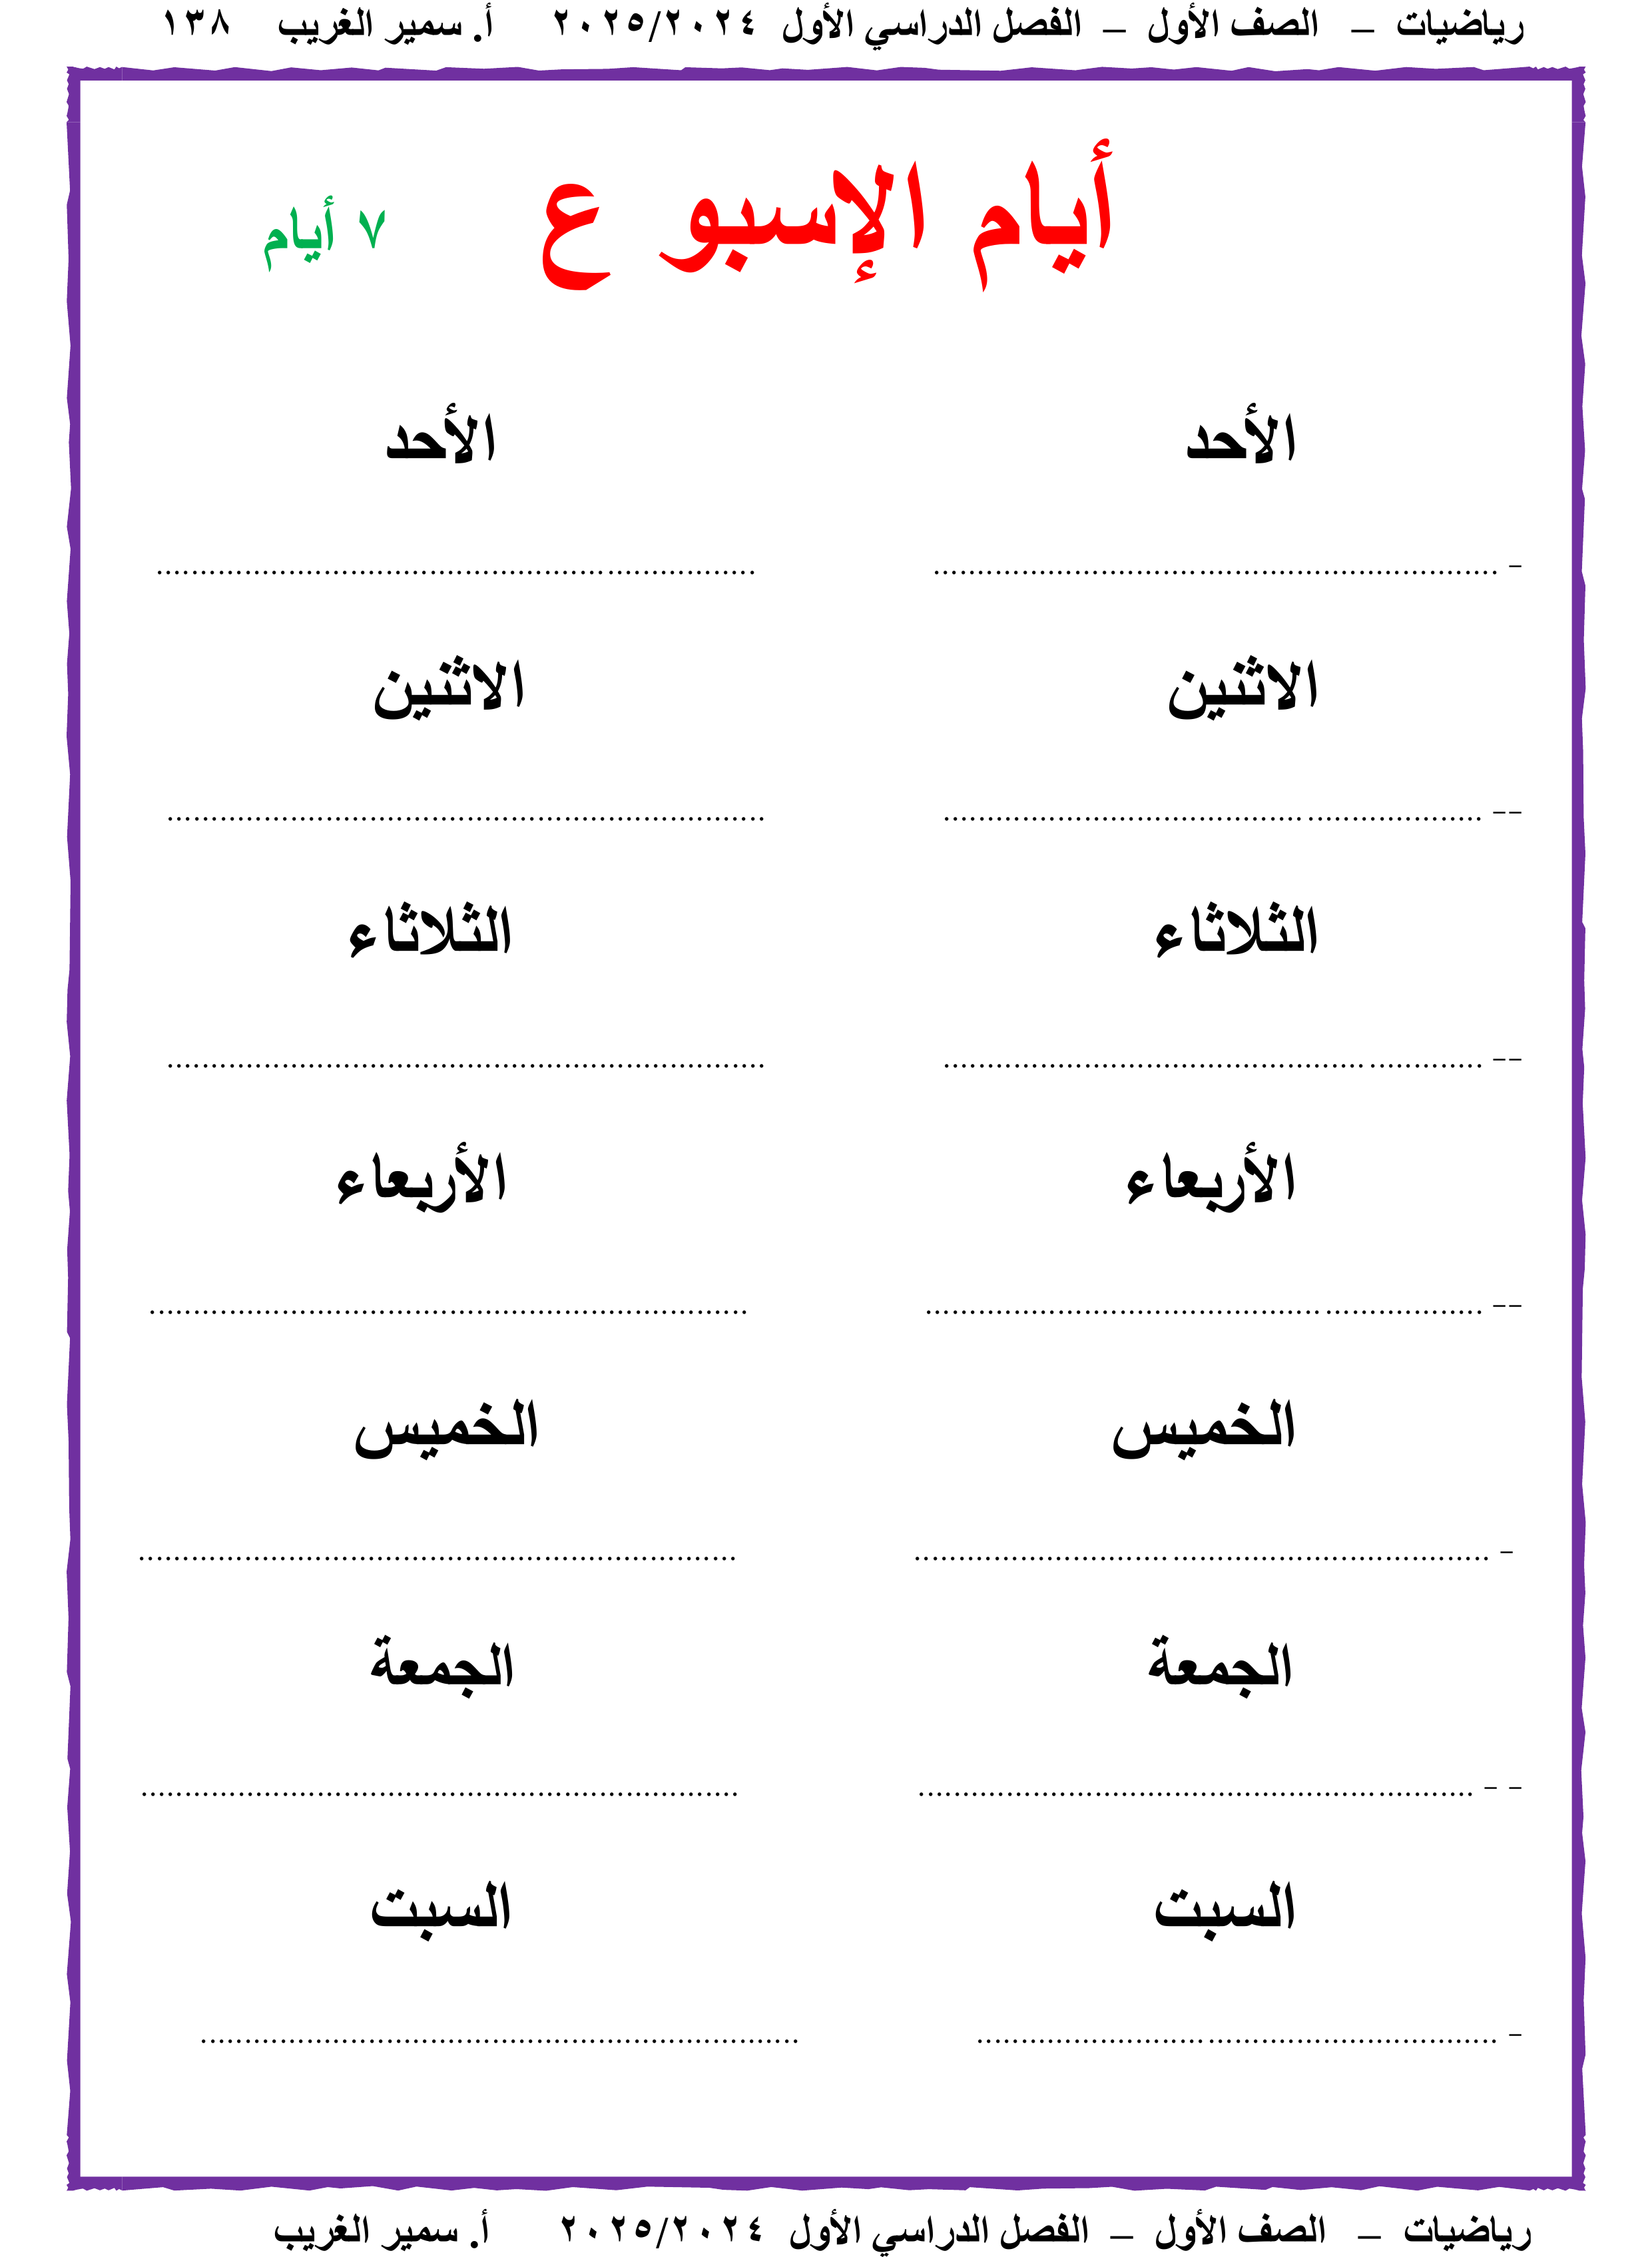 رياضيات – الصف الأول – الفصل الدراسي الأول ٢٠٢٥/٢٠٢٤ أ. سمير الغريب ١٣٨
أيام الإسبو ع ٧ أيام
الأحد الأحد
- ................................................................ ....................................................................
الاثنين الاثنين
-- ............................................................. ....................................................................
الثلاثاء الثلاثاء
-- ............................................................. ....................................................................
الأربعاء الأربعاء
-- ............................................................... ....................................................................
الخميس الخميس
- ................................................................. ....................................................................
الجمعة الجمعة
- - ............................................................... ....................................................................
السبت السبت
- ........................................................... ....................................................................
رياضيات – الصف الأول – الفصل الدراسي الأول ٢٠٢٥/٢٠٢٤ أ. سمير الغريب